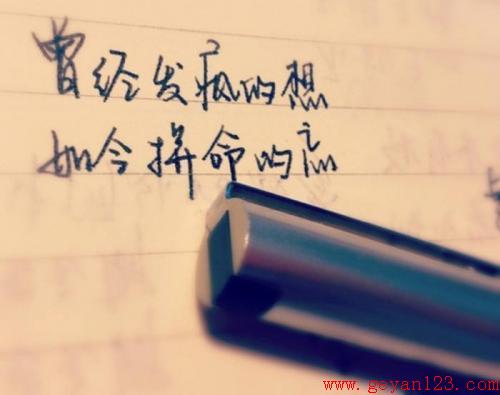 曾经发疯的想
如今拼命的忘
www.geyan123.com